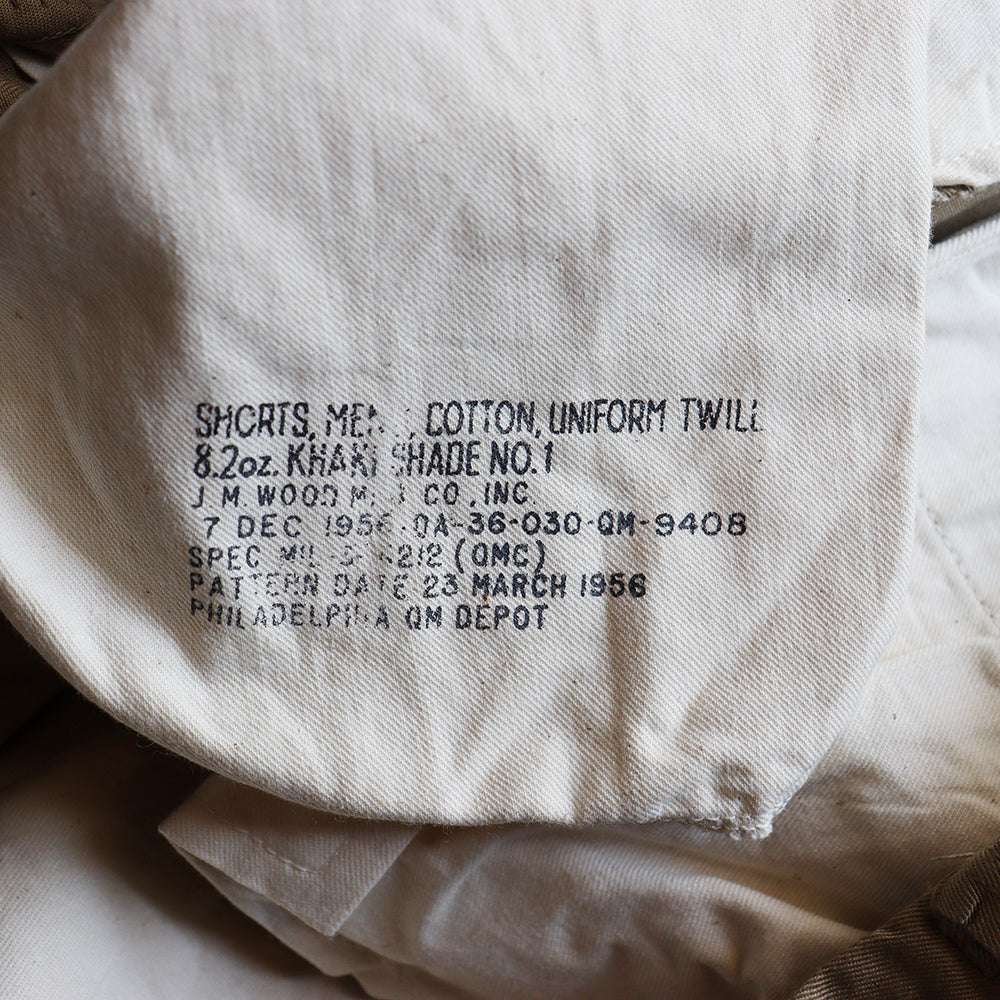 SHORTS, COTTON, UNIFORM TWILL
8.2oz. KHAKI SHADE NO.1
J M WOOD CO, INC.
7 DEC 1956 QA-36-030-QM-9408
SPEC MIL (QMC)
PATTERN DATE 23 MARCH 1956
PHILADELPHIA QM DEPOT